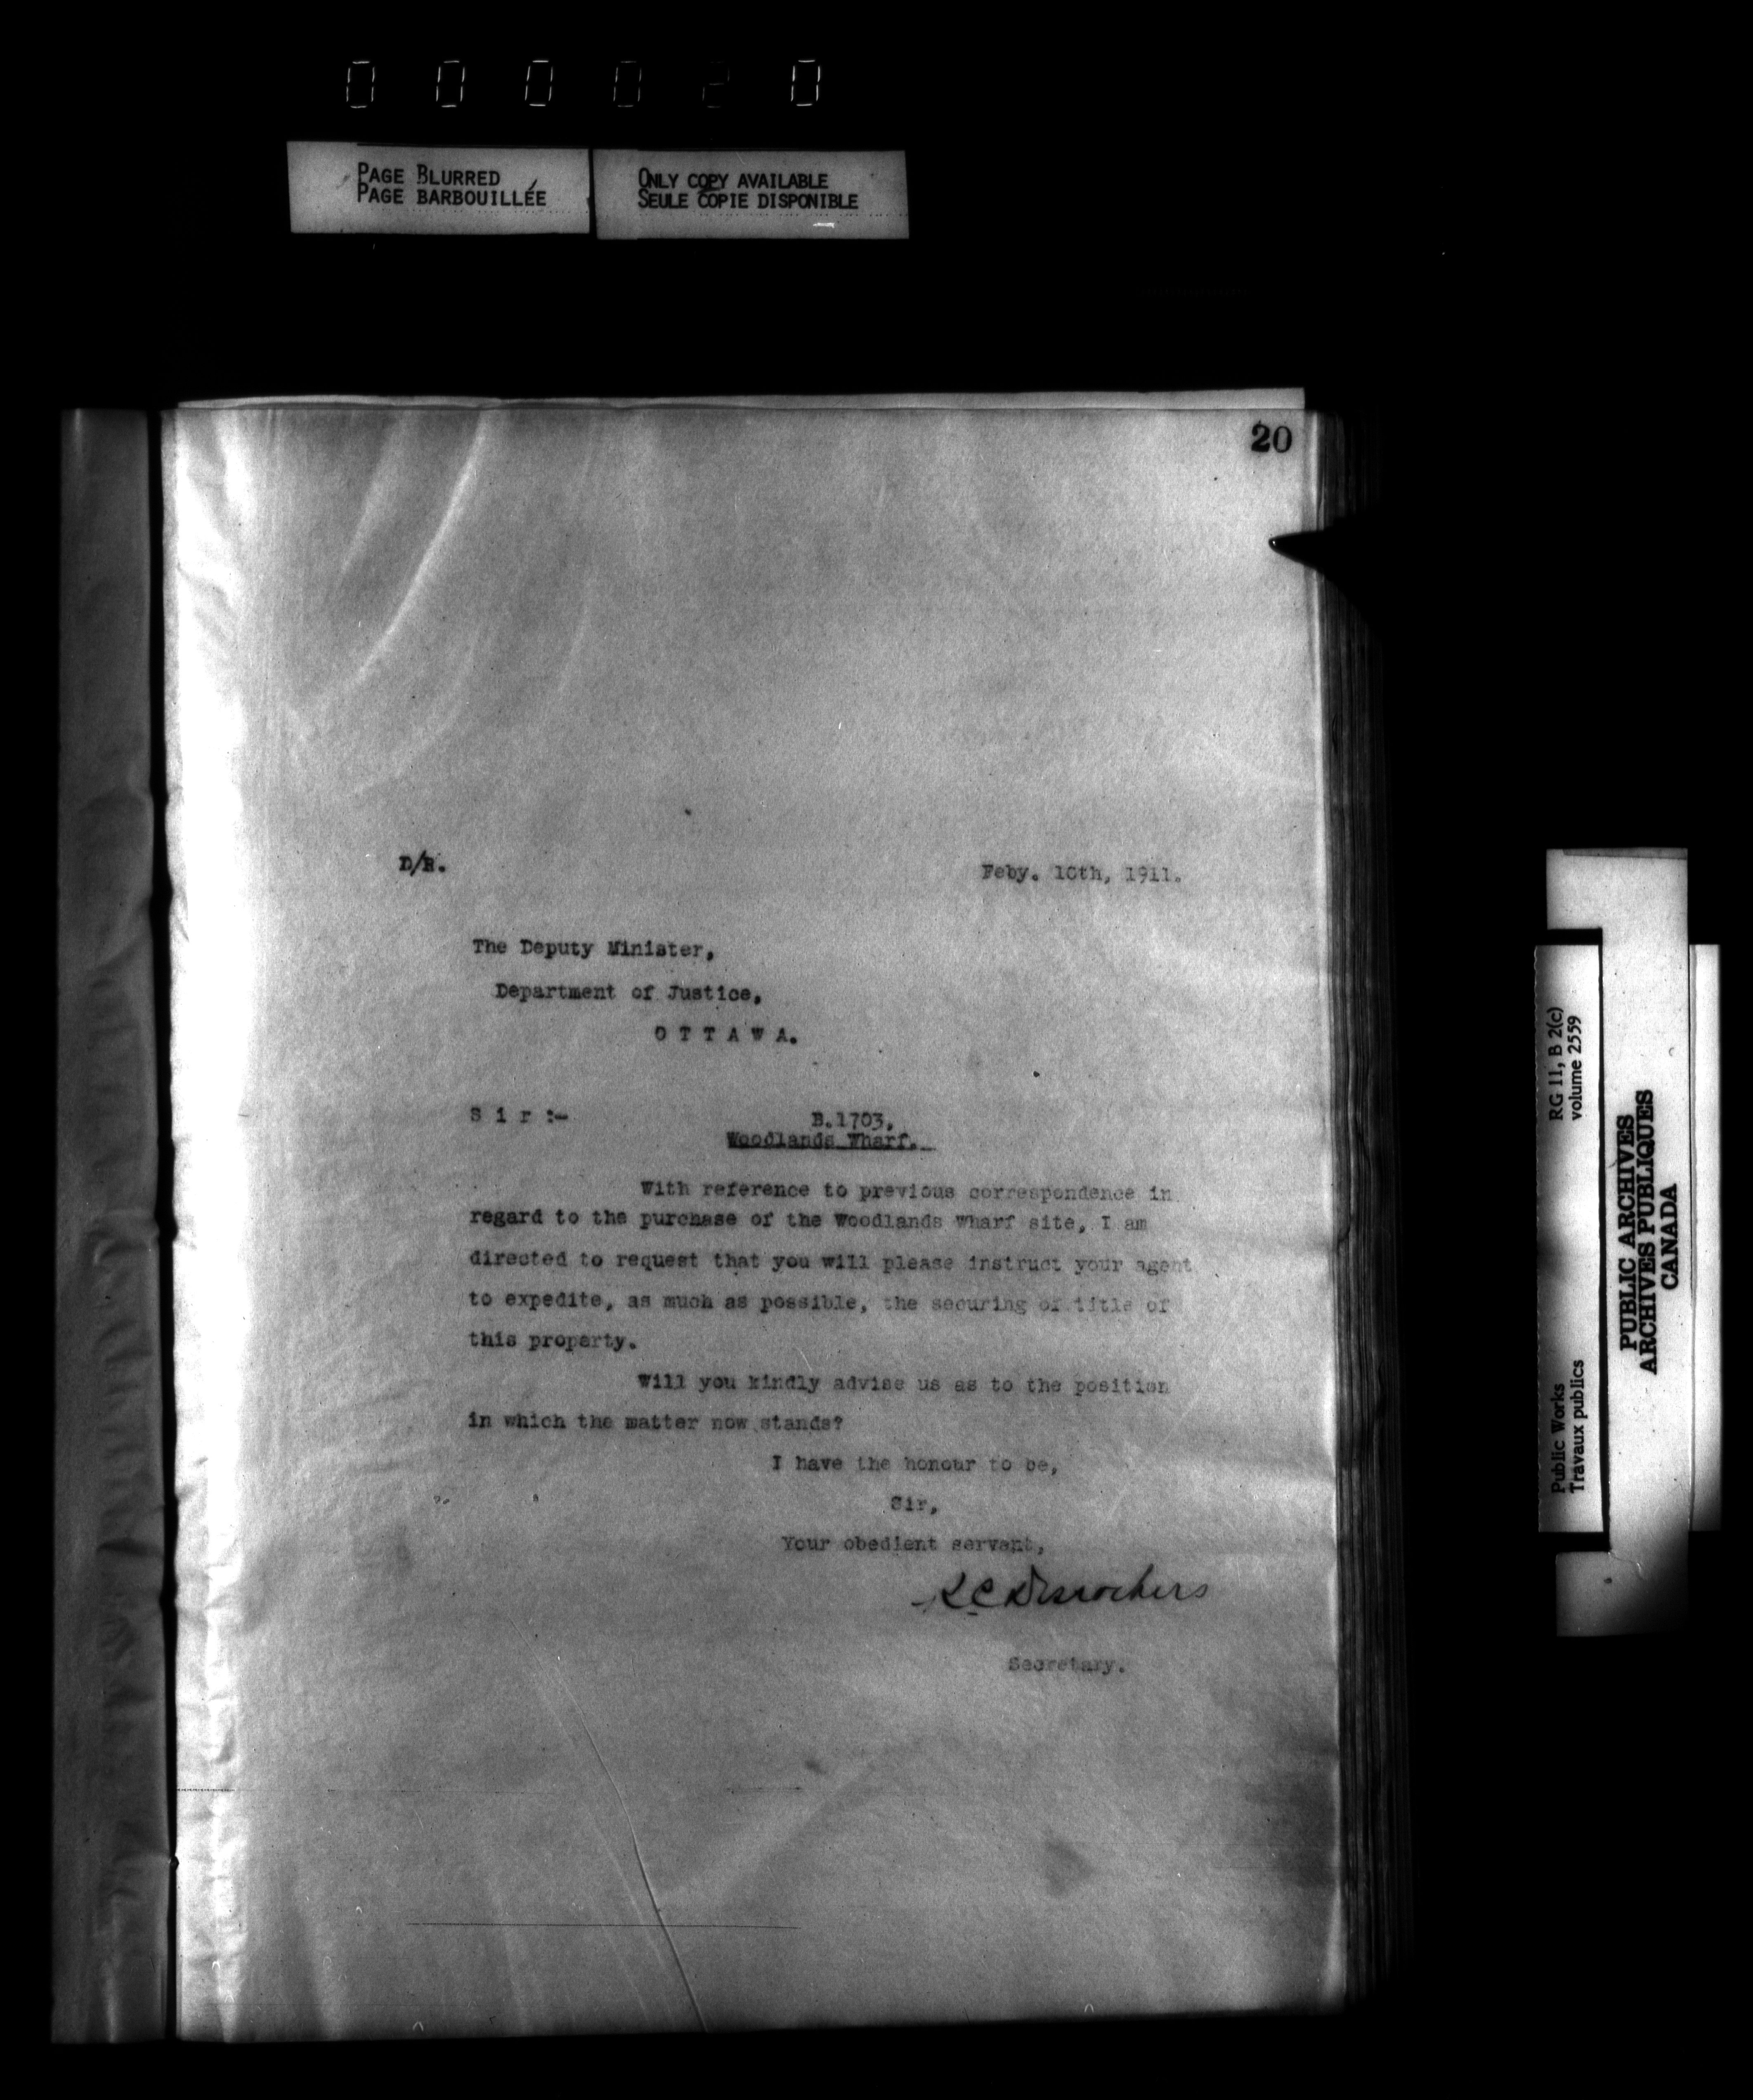 0 0 0 0 2 0
PAGE BLURRED
PAGE BARBOUILLÉE
ONLY COPY AVAILABLE
SEULE COPIE DISPONIBLE
20
D/R.
Feby. 10th, 1911.
The Deputy Minister,
Department of Justice,
O T T A W A.
S i r :-
B.1703.
Woodlands Wharf.
With reference to previous correspondence in
regard to the purchase of the Woodlands Wharf site, I am
directed to request that you will please instruct your agent
to expedite, as much as possible, the securing of title of
this property.
Will you kindly advise us as to the position
in which the matter now stands?
I have the honour to be,
Sir,
Your obedient servant,
R C Desrochers
Secretary.
RG 11, B 2(c)
volume 2559
Public Works
Travaux publics
PUBLIC ARCHIVES
ARCHIVES PUBLIQUES
CANADA